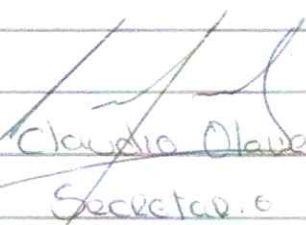 Claudio Olave
Secretario